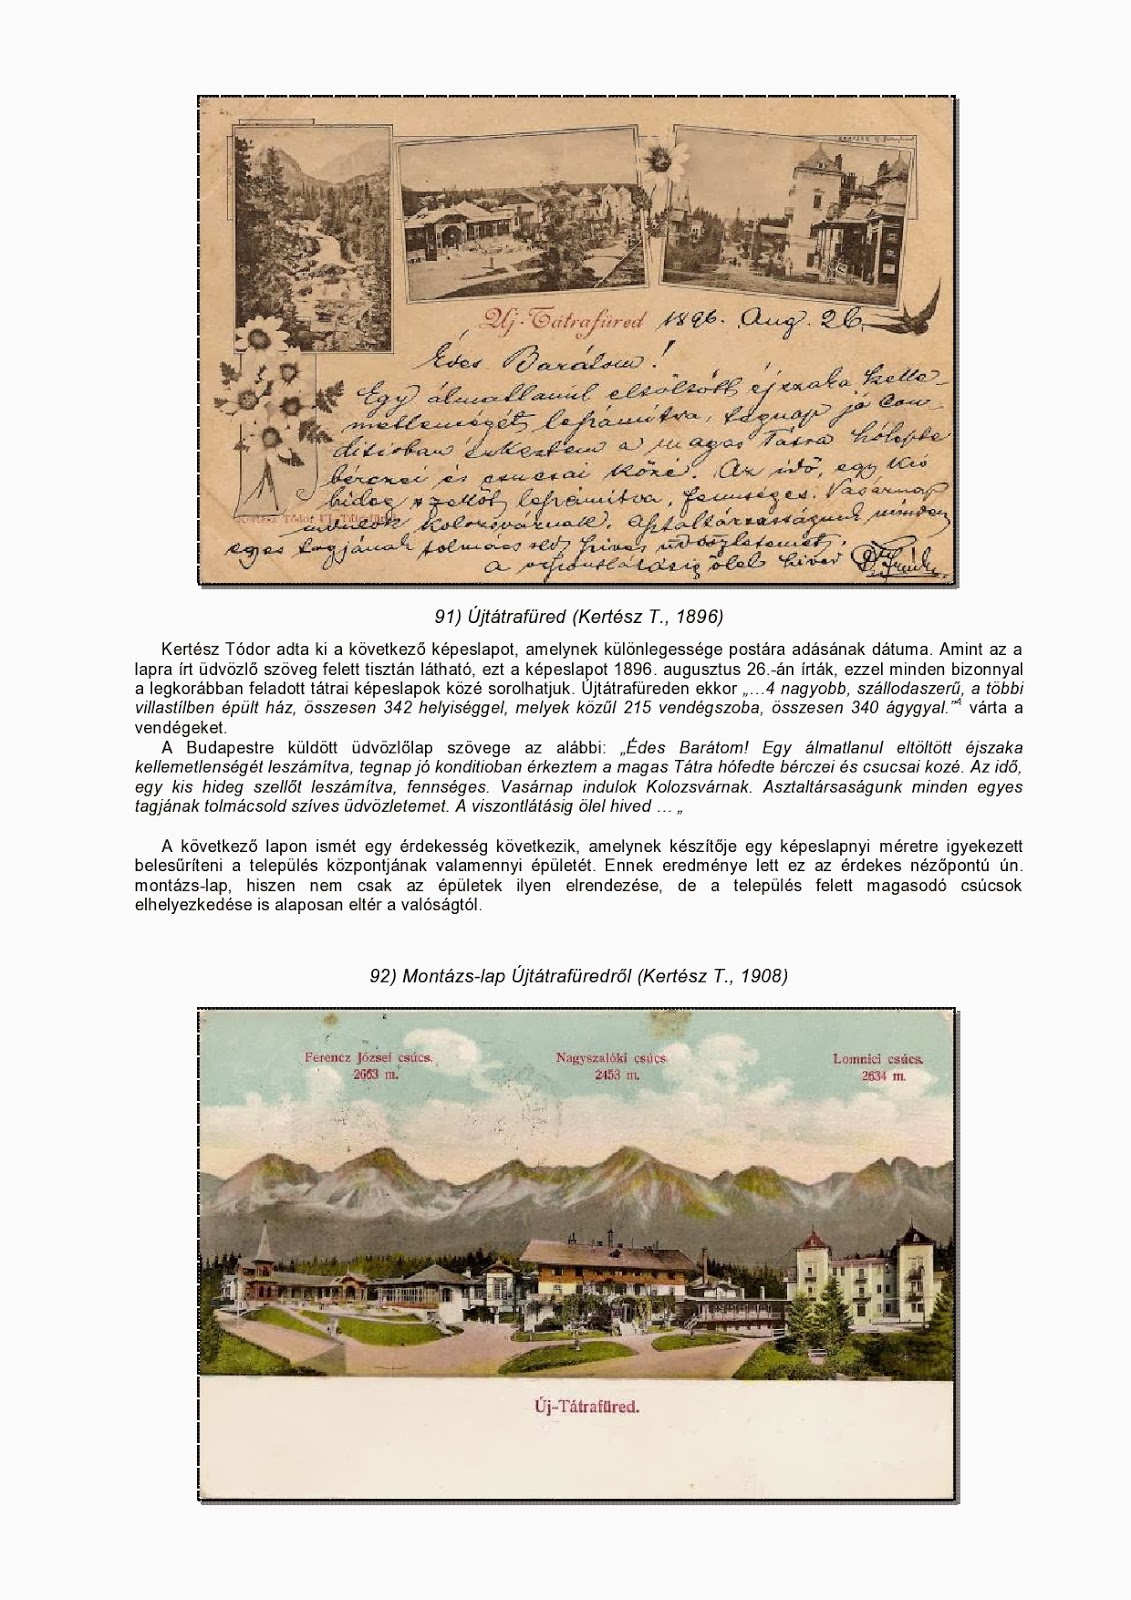 Uj-Tátrafüred 1896. Aug. 26.
Édes Barátom!
Egy álmatlanul eltöltött éjszaka kelle-
metlenségét leszámítva, tegnap jó con-
ditioban érkeztem a magas Tátra hófepte
bérczei és csucsai közé. Az idő, egy kis
hideg szellőt leszámítva, fennséges. Vasárnap
indulok Kolozsvárnak. Asztaltársaságunk minden
egyes tagjának tolmácsold szíves üdvözletemet.
a viszontlátásig ölel hived
Kertész Tódor Uj-Tátrafüred
91) Újtátrafüred (Kertész T., 1896)
Kertész Tódor adta ki a következő képeslapot, amelynek különlegessége postára adásának dátuma. Amint az a
lapra írt üdvözlő szöveg felett tisztán látható, ezt a képeslapot 1896. augusztus 26.-án írták, ezzel minden bizonnyal
a legkorábban feladott tátrai képeslapok közé sorolhatjuk. Újtátrafüreden ekkor „…4 nagyobb, szállodaszerű, a többi
villastílben épült ház, összesen 342 helyiséggel, melyek közűl 215 vendégszoba, összesen 340 ágygyal.”⁴ várta a
vendégeket.
A Budapestre küldött üdvözlőlap szövege az alábbi: „Édes Barátom! Egy álmatlanul eltöltött éjszaka
kellemetlenségét leszámítva, tegnap jó konditioban érkeztem a magas Tátra hófedte bérczei és csucsai kozé. Az idő,
egy kis hideg szellőt leszámítva, fennséges. Vasárnap indulok Kolozsvárnak. Asztaltársaságunk minden egyes
tagjának tolmácsold szíves üdvözletemet. A viszontlátásig ölel hived … „
A következő lapon ismét egy érdekesség következik, amelynek készítője egy képeslapnyi méretre igyekezett
belesűríteni a település központjának valamennyi épületét. Ennek eredménye lett ez az érdekes nézőpontú ún.
montázs-lap, hiszen nem csak az épületek ilyen elrendezése, de a település felett magasodó csúcsok
elhelyezkedése is alaposan eltér a valóságtól.
92) Montázs-lap Újtátrafüredről (Kertész T., 1908)
Ferencz József csúcs.
2663 m.
Nagyszalóki csúcs.
2453 m.
Lomnici csúcs.
2634 m.
Új-Tátrafüred.